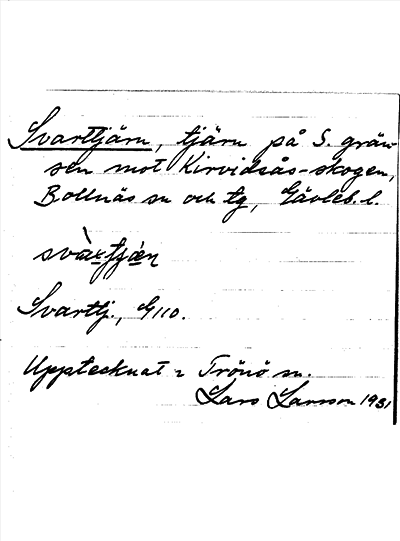 Svarttjärn, tjärn på S. grän-
sen mot Kirvidsås-skogen,
Bollnäs sn och tg, Gävleb. l.
Svarttj., G110.
Upptecknat i Trönö sn.
Lars Larsson 1931